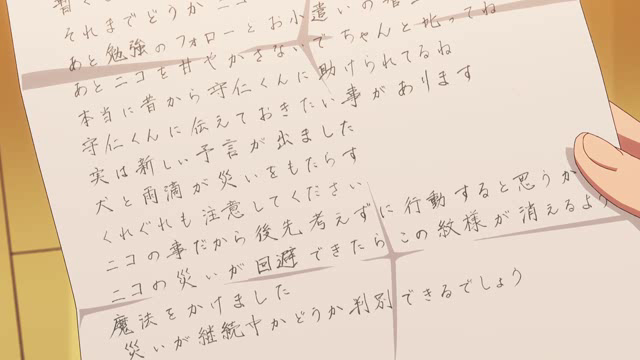 それまでどうかニコ
あと勉強のフォローとお小遣いの
あとニコを甘やかさないでちゃんと叱ってね
本当に昔から守仁くんに助けられてるね
守仁くんに伝えておきたい事があります
実は新しい予言が出ました
犬と雨滴が災いをもたらす
くれぐれも注意してください
ニコの事だから後先考えずに行動すると思うか
ニコの災いが回避できたらこの紋様が消えるよう
魔法をかけました
災いが継続中かどうか判別できるでしょう